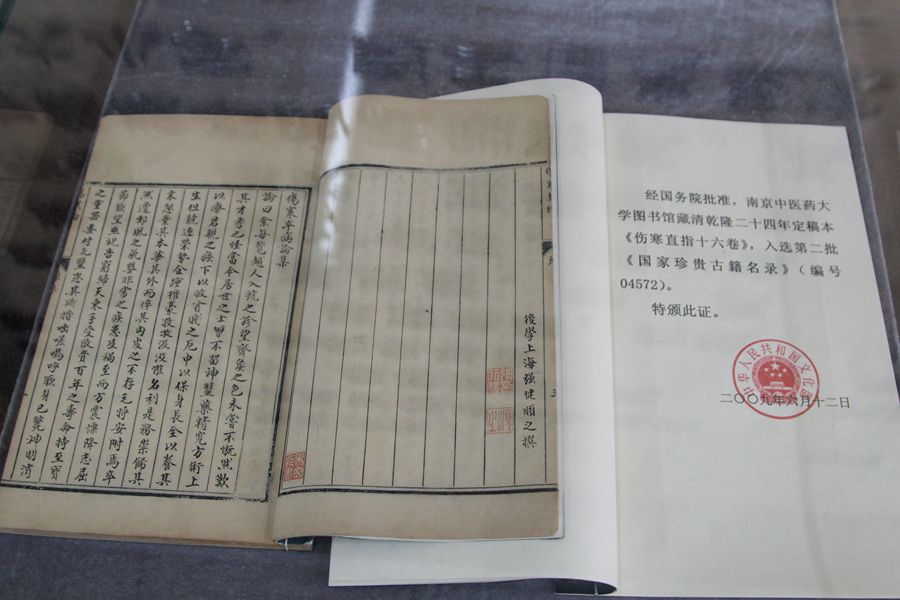 後學上海强健順之撰
傷寒卒病論集
論曰余每覽越人入虢之診望齊侯之色未嘗不慨然歎
其才秀也怪當今居世之士曾不留神醫藥精究方術上
以療君親之疾下以救貧賤之厄中以保身長全以養其
生但競逐榮勢企踵權豪孜孜汲汲惟名利是務崇飾其
末忽棄其本華其外而悴其内皮之不存毛將安附焉卒
然遭邪風之氣嬰非常之疾患及禍至而方震慄降志屈
節欽望巫祝告窮歸天束手受敗賫百年之壽命持至寶
之重器委付凡醫恣其所措咄嗟嗚呼厥身已斃神明消
经国务院批准，南京中医药大
学图书馆藏清乾隆二十四年定稿本
《伤寒直指十六卷》，入选第二批
《国家珍贵古籍名录》（编号
04572）。
特颁此证。
中华人民共和国文化部
二〇〇九年六月十二日